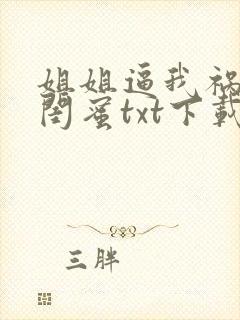 姐姐逼我祸
闺蜜txt下载
三胖